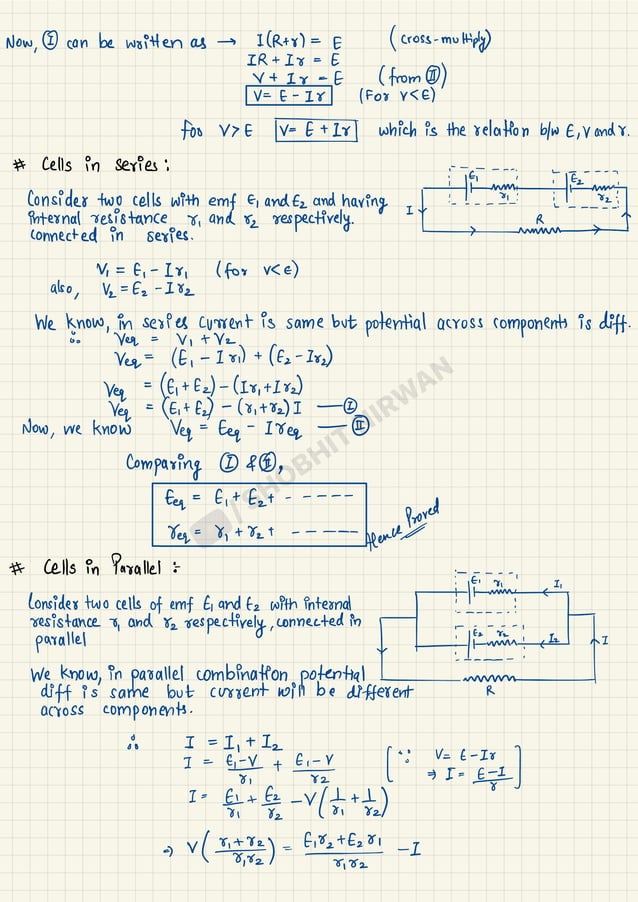 Now, Ⓘ can be written as → I(R+r) = E (cross-multiply)
IR + Ir = E
V + Ir = E (from Ⓘ Ⓘ)
V = E - Ir (For V<E)
foo V>E V = E + Ir which is the relation b/w E, V and r.
# Cells in series :
Consider two cells with emf E₁ and E₂ and having
internal resistance r₁ and r₂ respectively.
connected in series.
E₁ r₁ E₂ r₂
I
R
V₁ = E₁ - Ir₁ (for V<E)
also, V₂ = E₂ - Ir₂
We know, in series current is same but potential across components is diff.
∴ Veq = V₁ + V₂
Veq = (E₁ - Ir₁) + (E₂ - Ir₂)
Veq = (E₁ + E₂) - (Ir₁ + Ir₂)
Veq = (E₁ + E₂) - (r₁ + r₂) I — Ⓘ
Now, we know Veq = Eeq - Ireq — Ⓘ Ⓘ
Comparing Ⓘ & Ⓘ Ⓘ,
Eeq = E₁ + E₂ + - - - - -
req = r₁ + r₂ + - - - - -
Hence Proved
/SHOBHIT NIRWAN
# Cells in Parallel :-
Consider two cells of emf E₁ and E₂ with internal
resistance r₁ and r₂ respectively, connected in
parallel
E₁ r₁ I₁
E₂ r₂ I₂
I
R
We know, in parallel combination potential
diff is same but current will be different
across components.
∴ I = I₁ + I₂
I = E₁-V/r₁ + E₁-V/r₂ [∵ V = E - Ir
⇒ I = E-I/r]
I = E₁/r₁ + E₂/r₂ - V(1/r₁ + 1/r₂)
⇒ V(r₁+r₂/r₁r₂) = E₁r₂+E₂r₁/r₁r₂ - I